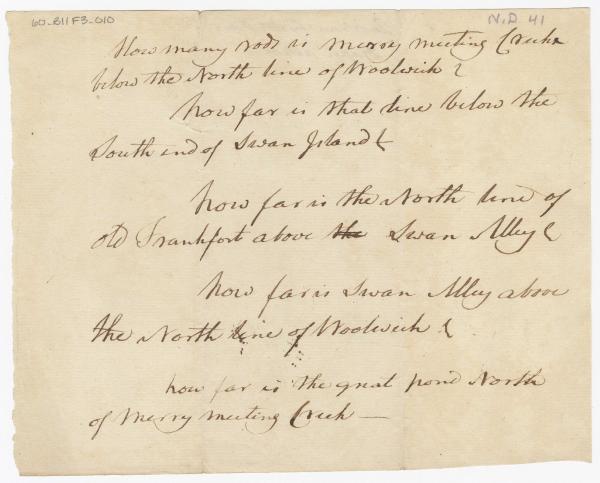 60-B11F3-010
N.D. 41
How many rods is merry meeting Creek
below the North line of Woolwich?
how far is that line below the
South end of Swan Island?
how far is the North line of
old Frankfort above the Swan Alley?
how far is Swan Alley above
the North line of Woolwich?
how far is the great pond North
of Merry meeting Creek —